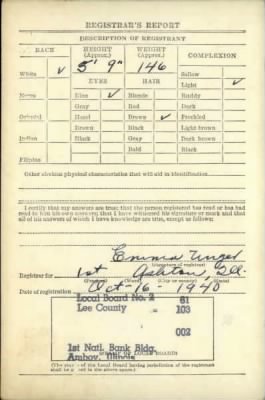 REGISTRAR'S REPORT
DESCRIPTION OF REGISTRANT
RACE HEIGHT (Approx.) WEIGHT (Approx.) COMPLEXION
White ✓ 5' 9" 146 Sallow
Light ✓
EYES HAIR
Negro Blue ✓ Blonde Ruddy
Gray Red Dark
Oriental Hazel Brown ✓ Freckled
Brown Black Light brown
Indian Black Gray Dark brown
Bald Black
Filipino
Other obvious physical characteristics that will aid in identification
I certify that my answers are true; that the person registered has read or has had
read to him his own answers; that I have witnessed his signature or mark and that
all of his answers of which I have knowledge are true, except as follows:
Emma Unger
(Signature of registrar)
Registrar for 1st Ashton, Ill.
(Precinct) (Ward) (City or county) (State)
Date of registration Oct-16-1940
Local Board No. 2 81
Lee County 103
002
1st Natl. Bank Bldg.
(STAMP OF LOCAL BOARD)
Amboy, Illinois
(The stamp of the Local Board having jurisdiction of the registrant
shall be placed in the above space.)